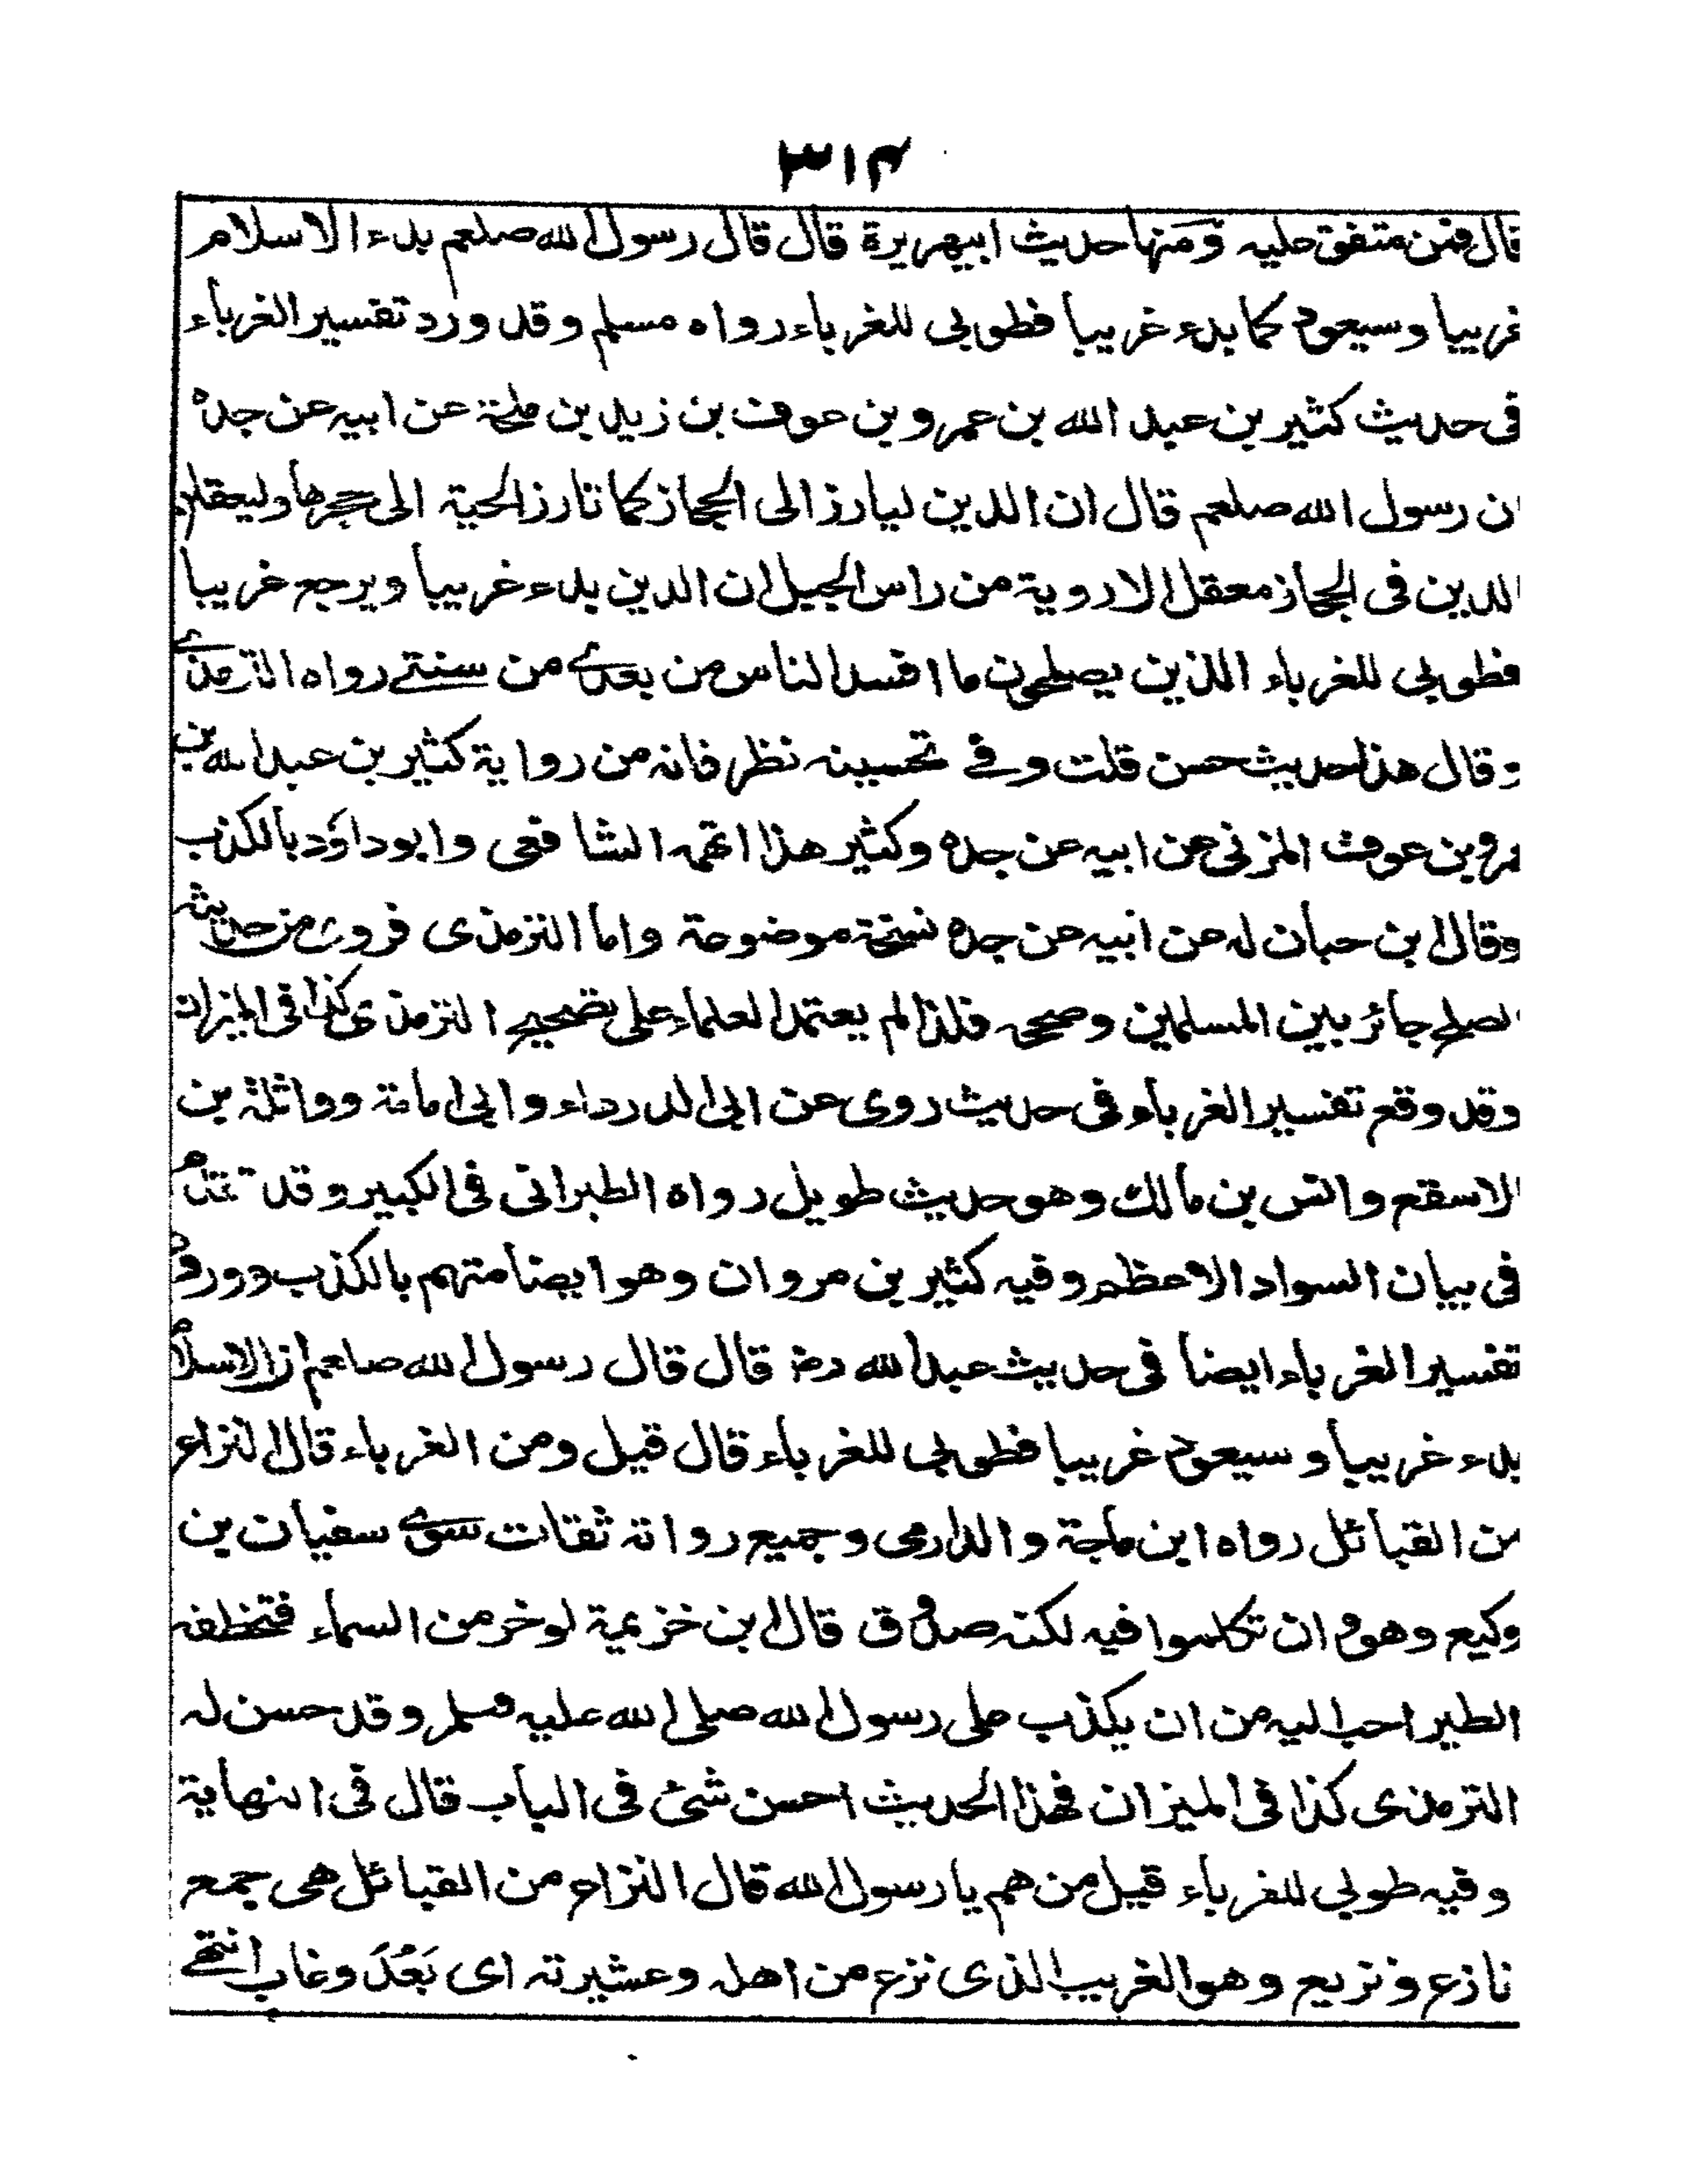 ٣١٤
قال فمن متفق عليه ومنها حديث ابيهريرة قال قال رسول الله صلعم بدء الاسلام
غريبا وسيعود كما بدء غريبا فطوبى للغرباء رواه مسلم وقد ورد تفسير الغرباء
فى حديث كثير بن عبد الله بن عمرو بن عوف بن زيد بن ملحة عن ابيه عن جده
ان رسول الله صلعم قال ان الدين ليارز الى الحجاز كما تارز الحية الى جحرها وليعقلن
الدين فى الحجاز معقل الاروية من راس الجبل ان الدين بدء غريبا ويرجع غريبا
فطوبى للغرباء الذين يصلحون ما افسد الناس من بعدى من سنتى رواه الترمذى
وقال هذا حديث حسن قلت وفى تحسينه نظر فانه من رواية كثير بن عبد الله بن
عمرو بن عوف المزنى عن ابيه عن جده وكثير هذا اتهمه الشافعى وابوداؤد بالكذب
وقال ابن حبان له عن ابيه عن جده نسخة موضوعة واما الترمذى فروى من حديثه
الصلح جائز بين المسلمين وصححه فلذا لم يعتمد العلماء على تصحيح الترمذى كذا فى الميزان
وقد وقع تفسير الغرباء فى حديث روى عن ابى الدرداء وابى امامة وواثلة بن
الاسقع وانس بن مالك وهو حديث طويل رواه الطبرانى فى الكبير وقد تقدم
فى بيان السواد الاعظم وفيه كثير بن مروان وهو ايضا متهم بالكذب وورد
تفسير الغرباء ايضا فى حديث عبد الله رض قال قال رسول الله صلعم ان الاسلام
بدء غريبا وسيعود غريبا فطوبى للغرباء قال قيل ومن الغرباء قال النزاع
من القبائل رواه ابن ماجة والدارمى وجميع رواته ثقات سوى سفيان بن
وكيع وهو وان تكلموا فيه لكنه صدوق قال ابن خزيمة لو خر من السماء فتخطفه
الطير احب اليه من ان يكذب على رسول الله صلى الله عليه وسلم وقد حسن له
الترمذى كذا فى الميزان فهذا الحديث احسن شئ فى الباب قال فى النهاية
وفيه طوبى للغرباء قيل من هم يا رسول الله قال النزاع من القبائل هى جمع
نازع ونزيع وهو الغريب الذى نزع من اهله وعشيرته اى بَعُدَ وغاب انتهى